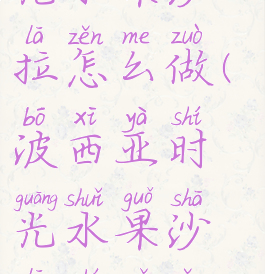 lā zěn me zuò
拉怎么做(
bō xī yà shí
波西亚时
guāng shuǐ guǒ shā
光水果沙